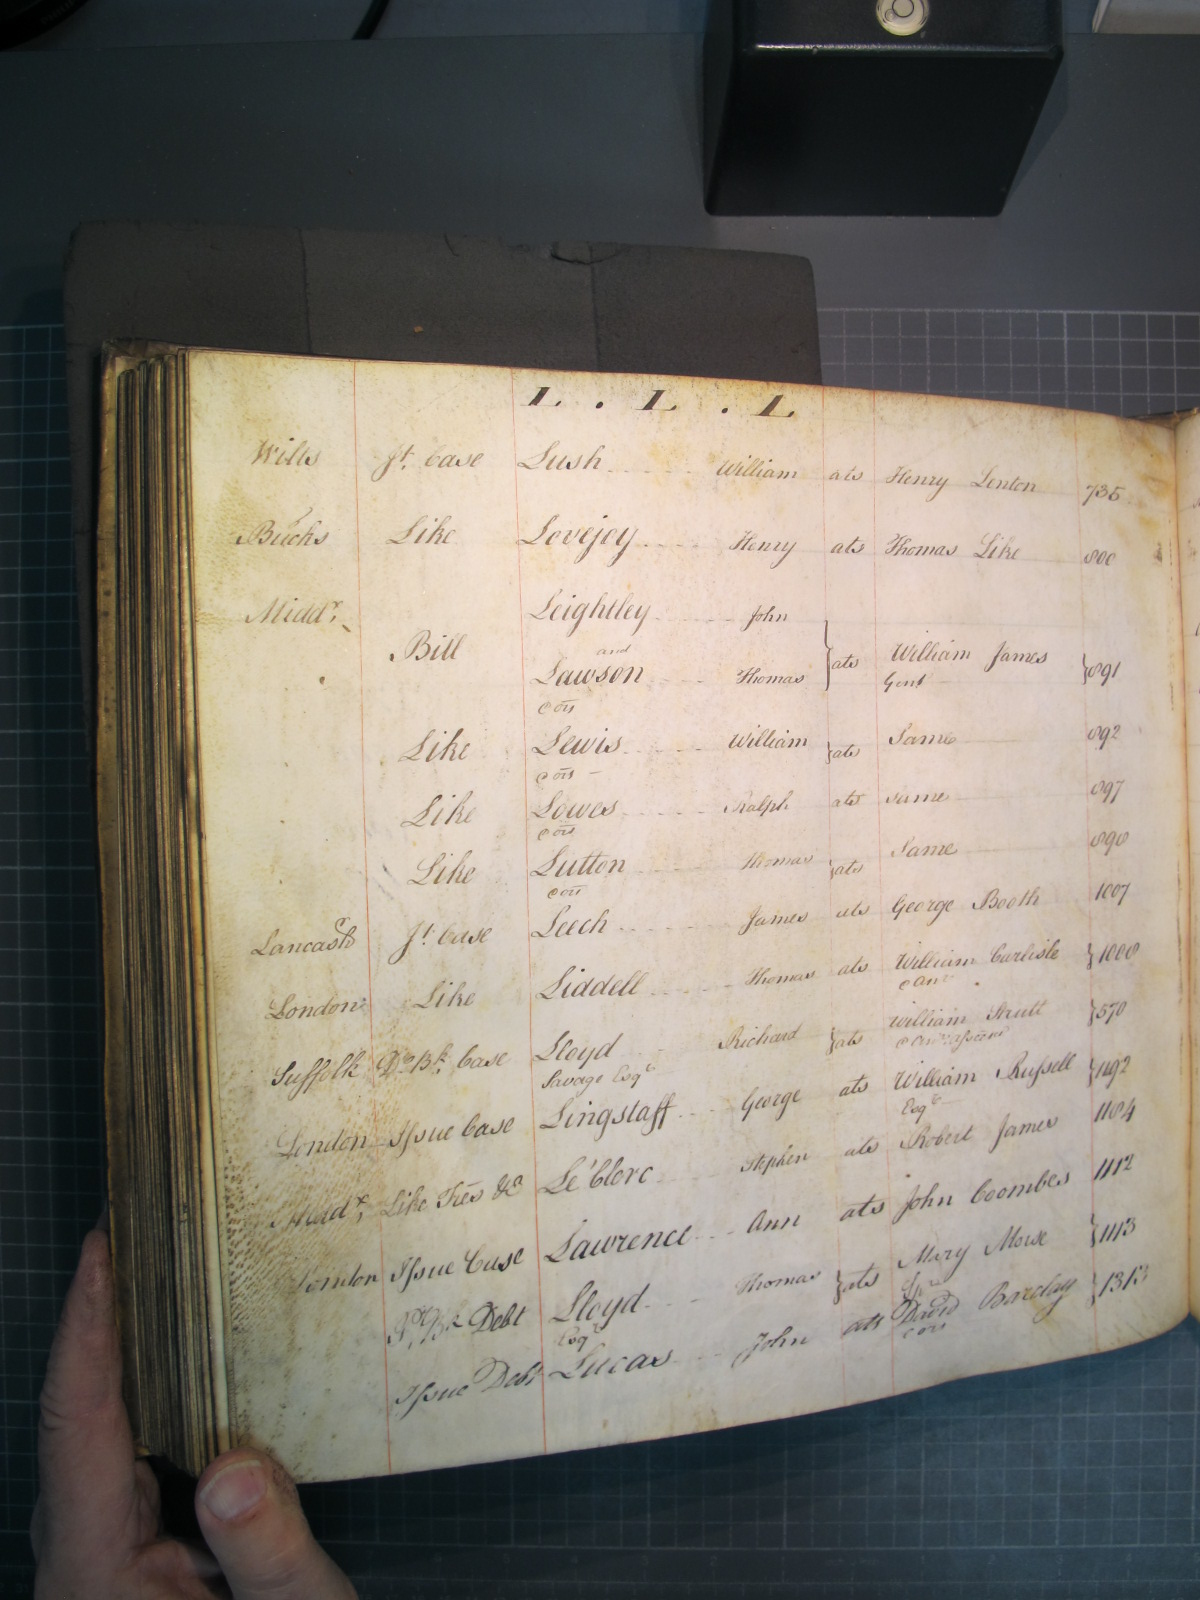 L . L . L
Wilts Jt. Case Lush William ats Henry Lenton 735
Bucks Like Lovejoy Henry ats Thomas Like 800
Middx. Leightley John
Bill and ats William James 891
Lawson Thomas Gent
Like Lewis William ats Same 892
Like Lowes Ralph ats same 897
Like Sutton Thomas ats Same 898
Lancashr Jt. Case Leech James ats George Booth 1007
London Like Liddell Thomas ats William Carlisle 1008
Suffolk Case Lloyd Richard ats William Strutt 570
Savage Esqe
London Issue Case Lingstaff George ats William Russell 1192
Esqe
Middx. Like Tres &c Le'Clerc Stephen ats Robert James 1184
London Issue Case Lawrence Ann ats John Coombes 1112
Debt Lloyd Thomas ats Mary Morse 1113
Esqe
Issue Debt Lucas John ats David Barclay 1313